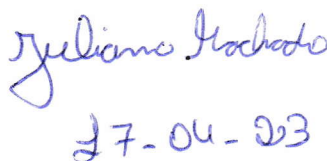 Juliano Machado
17-04-23